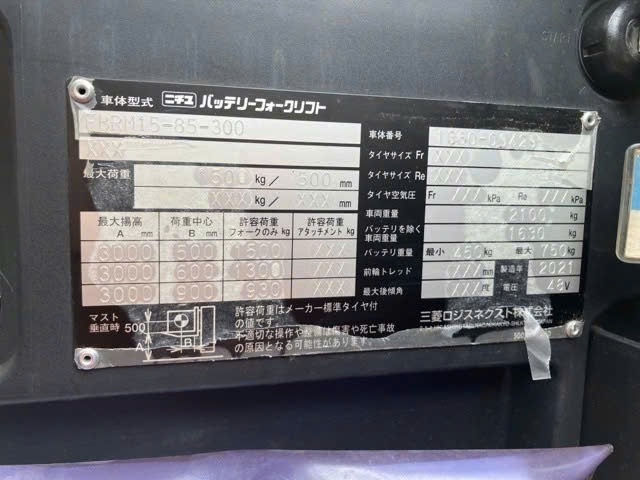 START
車体型式 ニチユ バッテリーフォークリフト
FBRM15-85-300
XXX
最大荷重 1500 kg / 500 mm
XXX kg / XXX mm
最大揚高 A mm 荷重中心 B mm 許容荷重 フォークのみ kg 許容荷重 アタッチメント kg
3000 500 1500 XXX
3000 600 1300 XXX
3000 900 930 XXX
マスト垂直時 500
A
B
許容荷重はメーカー標準タイヤ付
の値です。
不適切な操作や整備は傷害や死亡事故
の原因となる可能性があります。
車体番号
タイヤサイズ Fr XXX
タイヤサイズ Re XXX
タイヤ空気圧 Fr XXX kPa Re XXX kPa
車両重量 2100 kg
バッテリを除く車両重量 1630 kg
バッテリ重量 最小 450 kg 最大 750 kg
前輪トレッド XXX mm 製造年 2021
最大後傾角 XXX 度 電圧 48 V
三菱ロジスネクスト株式会社